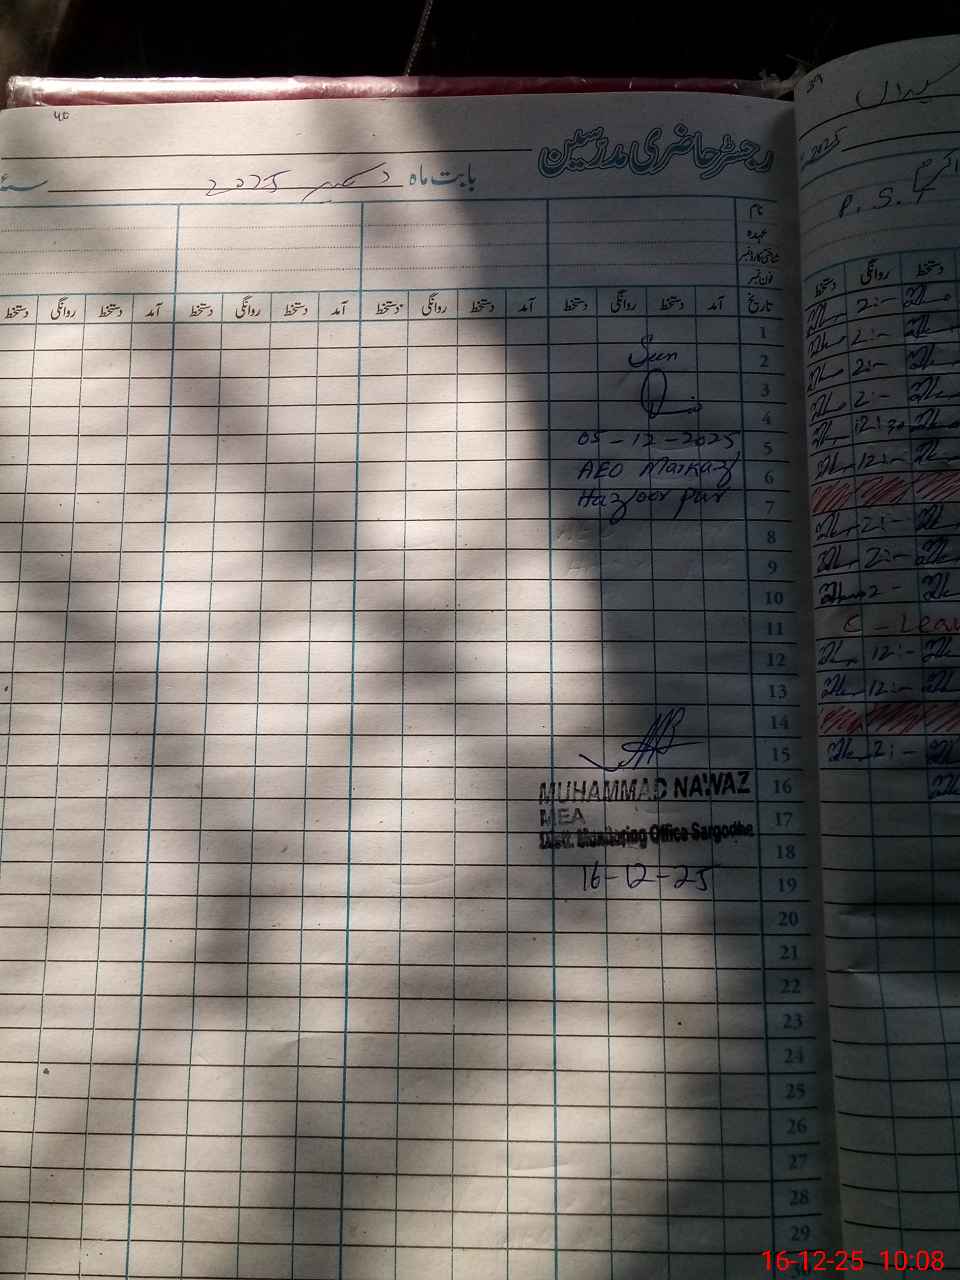 40
رجسٹر حاضری مدرسین
بابت ماہ دسمبر 2025
نام
عہدہ
شناختی کارڈ نمبر
فون نمبر
تاریخ آمد دستخط روانگی دستخط آمد دستخط روانگی دستخط آمد دستخط روانگی دستخط آمد دستخط روانگی دستخط
1
2
3
4
5
6
7
8
9
10
11
12
13
14
15
16
17
18
19
20
21
22
23
24
25
26
27
28
29
30
05-12-2025
AEO Markaz
Hazoor pur
MUHAMMAD NAWAZ
MEA
Distt. Monitoring Office Sargodha
16-12-25
39
2025
P. S. T
دستخط روانگی دستخط
2:-
2:-
2:-
2:-
12:30
12:-
2:-
2:-
2-
C - Leav
12:-
12:-
2:-
16-12-25 10:08